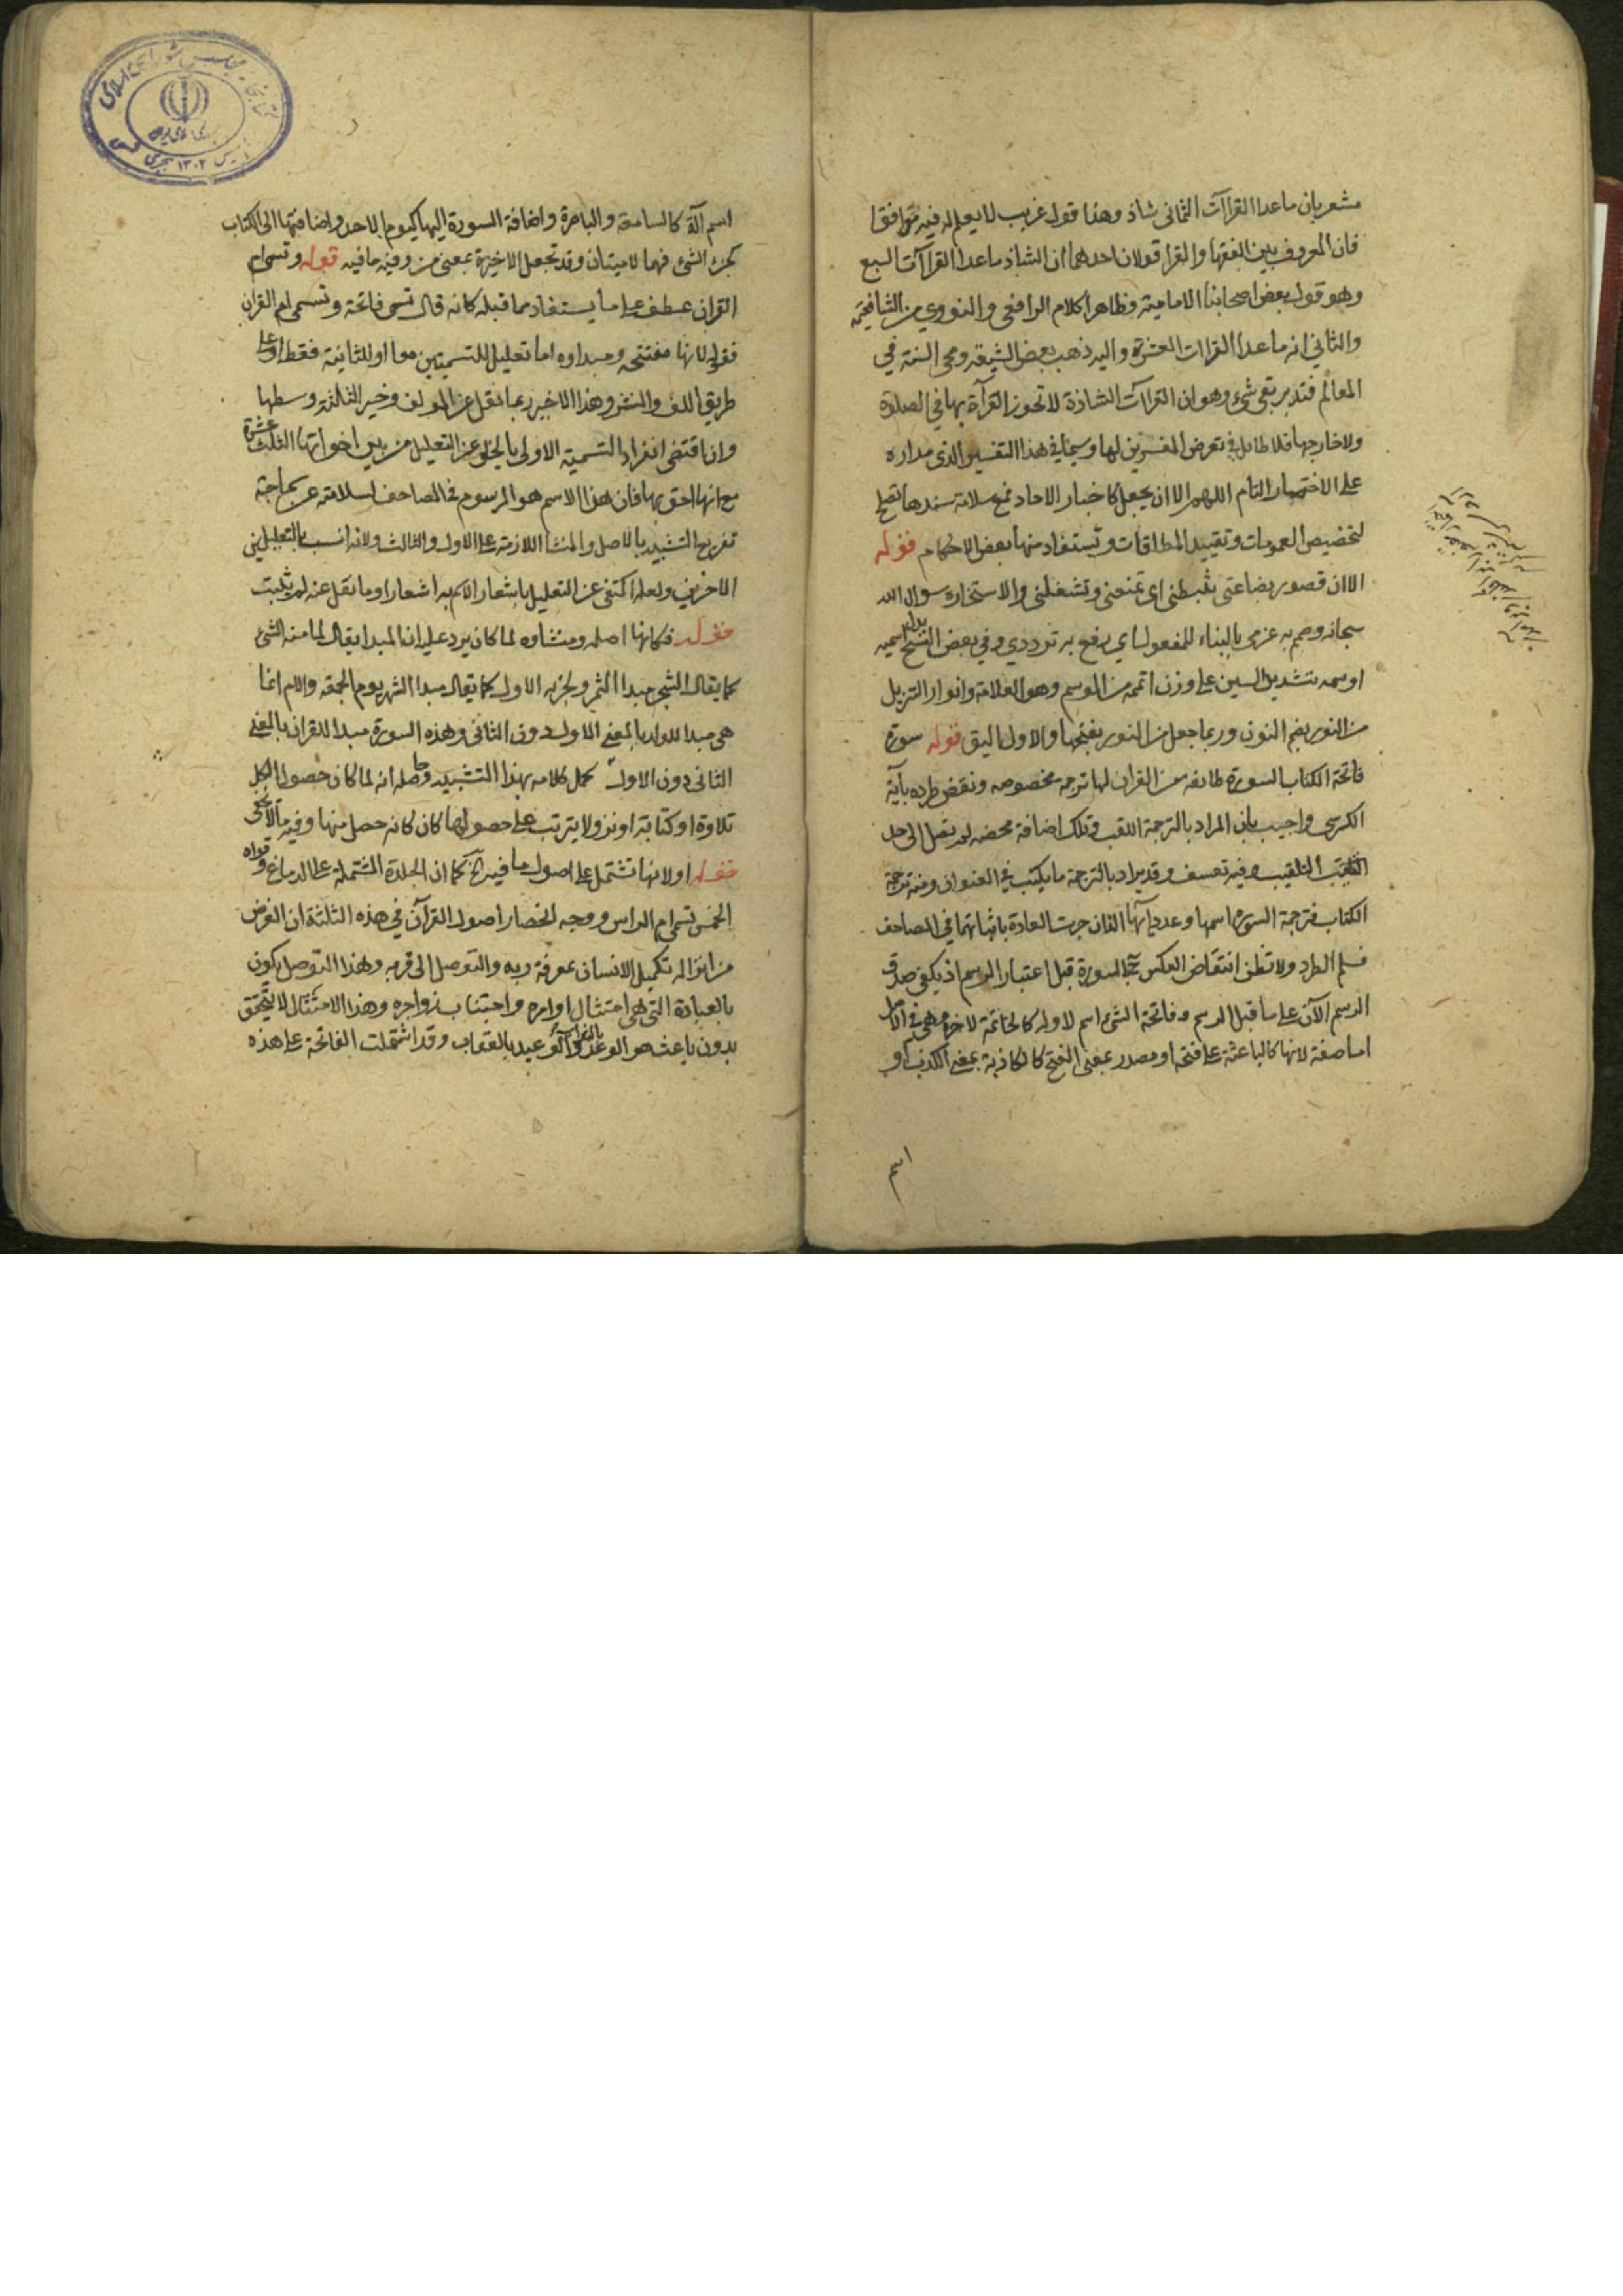 مشعر بان ماعدا القراآت الثمانى شاذ وهذا قول غريب لا يعلم له فيه موافقا
فان المعروف بين الفقها والقرا قولان احدهما ان الشاذ ماعدا القراآت السبع
وهو قول بعض اصحابنا الامامية وظاهر كلام الرافعى والنووي من الشافعية
والثاني انه ماعدا القراات العشرة واليه ذهب بعض الشيعة ومحى السنة في
المعالم فتدبر بقى شئ وهو ان القراآت الشاذة لا تجوز القرآة بها في الصلوة
ولا خارجها فلا طايل في تعرض المفسرين لها وسيما في هذا التفسير الذى مداره
على الاختصار التام اللهم الا ان يجعل كاخبار الاحاد فمع سلامة سندها تصلح
لتخصيص العمومات وتقييد المطلقات وتستفاد منها بعض الاحكام قوله
الا ان قصور بضاعتى يثبطنى اى تمنعنى وتشغلنى والاستخاره سوال الله
سبحانه وصمم به عزمى بالبناء للمفعول اي رفع به ترددي وفي بعض النسخ بدله اسميه
او سمه بتشديد السين على وزن اتممه من الموسم وهو العلامة وانوار التنزيل
من النور بضم النون وربما جعل من النور بفتحها والاول اليق قوله سورة
فاتحة الكتاب السورة طائفه من القران لها ترجمة مخصوصه ونقض طرده بآية
الكرسى واجيب بان المراد بالترجمة اللقب وتلك اضافة محضه لم تصل الى حد
التلقيب وفيه تعسف وقد يراد بالترجمة ما يكتب في العنوان ومنه ترجمة
الكتاب فترجمة السوره اسمها وعدد آيها اللذان جرت العادة باثباتهما في المصاحف
فسلم الطرد ولا تظن انتقاض العكس بالسورة قبل اعتبار الرسم اذ يكفى صدق
الرسم الآن على ما قبل الرسم وفاتحة الشئ اسم لاوله كالخاتمة لاخره وهى في الاصل
اما صفة لانها كالباعثة على فتحه او مصدر بمعنى الفتح كالكاذبة بمعنى الكذب او
اسم
اسم آلة كالسامعة والباصرة واضافة السورة اليها كيوم الاحد واضافتها الى الكتاب
كجزء الشئ فهما لاميتان وقد تجعل الاخيرة بمعنى من وفيه ما فيه قوله وتسمى ام
القران عطف على ما يستفاد مما قبله كانه قال تسمى فاتحة وتسمى ام القران
فقوله لانها مفتتحه ومبداوه اما تعليل للتسميتين معا او للثانية فقط او على
طريق اللف والنشر وهذا الاخير ربما نقل عن المولف وخير الثلثة وسطها
وان اقتضى انفراد التسمية الاولى بالخلو عن التعليل من بين اخواتها الثلث عشرة
مع انها احق بها فان هذا الاسم هو المرسوم في المصاحف لسلامته عن
تفريع التشبيه بالاصل والمنشأ اللازمة على الاول والثالث ولانه انسب بالتعليلين
الاخرين ولعله اكتفى عن التعليل باشعار الاسم به اشعارا وما نقل عنه لم يثبت
قوله فكانها اصله ومنشاوه لما كان يرد عليه ان المبدا يقال لما منه الشئ
كما يقال الشجر مبدا الثمر ولجزئه الاول كما يقال مبدا الشهر يوم الجمعة والام انما
هى مبدا للولد بالمعنى الاول دون الثانى وهذه السورة مبدا للقران بالمعنى
الثانى دون الاول كمل كلامه بهذا التشبيه وحاصله انه لما كان حصول الكل
تلاوة او كتابة او نزولا يترتب على حصولها كان كانه حصل منها وفيه ما لا يخفى
قوله او لانها تشتمل على اصول ما فيه الخ كما ان الجلدة المشتملة على الدماغ وقواه
الخمس تسمى ام الراس ووجه انحصار اصول القرآن في هذه الثلثة ان الغرض
من انزاله تكميل الانسان بمعرفة ربه والتوصل الى قربه وهذا التوصل يكون
بالعبادة التى هى امتثال اوامره واجتناب زواجره وهذا الامتثال لا يتحقق
بدون باعث هو الوعد بالثواب والوعيد بالعقاب وقد اشتملت الفاتحة على هذه